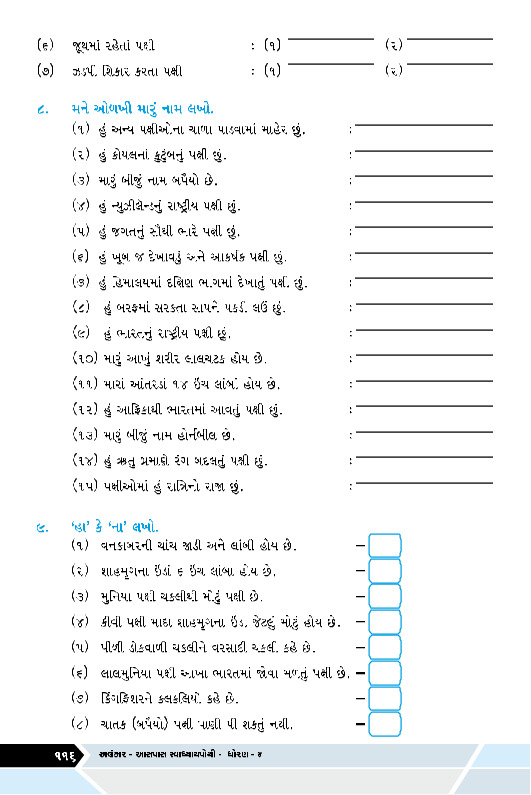 (૬) જૂથમાં રહેતાં પક્ષી : (૧) (૨)
(૭) ઝડપી શિકાર કરતા પક્ષી : (૧) (૨)
૮. મને ઓળખી મારું નામ લખો.
(૧) હું અન્ય પક્ષીઓના ચાળા પાડવામાં માહેર છું. :
(૨) હું કોયલનાં કુટુંબનું પક્ષી છું. :
(૩) મારું બીજું નામ બપૈયો છે. :
(૪) હું ન્યુઝીલેન્ડનું રાષ્ટ્રીય પક્ષી છું. :
(૫) હું જગતનું સૌથી ભારે પક્ષી છું. :
(૬) હું ખૂબ જ દેખાવડું અને આકર્ષક પક્ષી છું. :
(૭) હું હિમાલયમાં દક્ષિણ ભાગમાં દેખાતું પક્ષી છું. :
(૮) હું બરફમાં સરકતા સાપને પકડી લઉં છું. :
(૯) હું ભારતનું રાષ્ટ્રીય પક્ષી છું. :
(૧૦) મારું આખું શરીર લાલચટક હોય છે. :
(૧૧) મારાં આંતરડાં ૧૪ ઇંચ લાંબાં હોય છે. :
(૧૨) હું આફ્રિકાથી ભારતમાં આવતું પક્ષી છું. :
(૧૩) મારું બીજું નામ હોર્નબીલ છે. :
(૧૪) હું ઋતુ પ્રમાણે રંગ બદલતું પક્ષી છું. :
(૧૫) પક્ષીઓમાં હું રાત્રિનો રાજા છું. :
૯. ‘હા’ કે ‘ના’ લખો.
(૧) વનકાબરની ચાંચ જાડી અને લાંબી હોય છે. –
(૨) શાહમૃગના ઇંડાં ૬ ઇંચ લાંબા હોય છે. –
(૩) મુનિયા પક્ષી ચકલીથી મોટું પક્ષી છે. –
(૪) કીવી પક્ષી માદા શાહમૃગના ઇંડા જેટલું મોટું હોય છે. –
(૫) પીળી ડોકવાળી ચકલીને વરસાદી ચકલી કહે છે. –
(૬) લાલમુનિયા પક્ષી આખા ભારતમાં જોવા મળતું પક્ષી છે. –
(૭) કિંગફિશરને કલકલિયો કહે છે. –
(૮) ચાતક (બપૈયો) પક્ષી પાણી પી શકતું નથી. –
૧૧૬ અલંકાર - આસપાસ સ્વાધ્યાયપોથી - ધોરણ - ૪